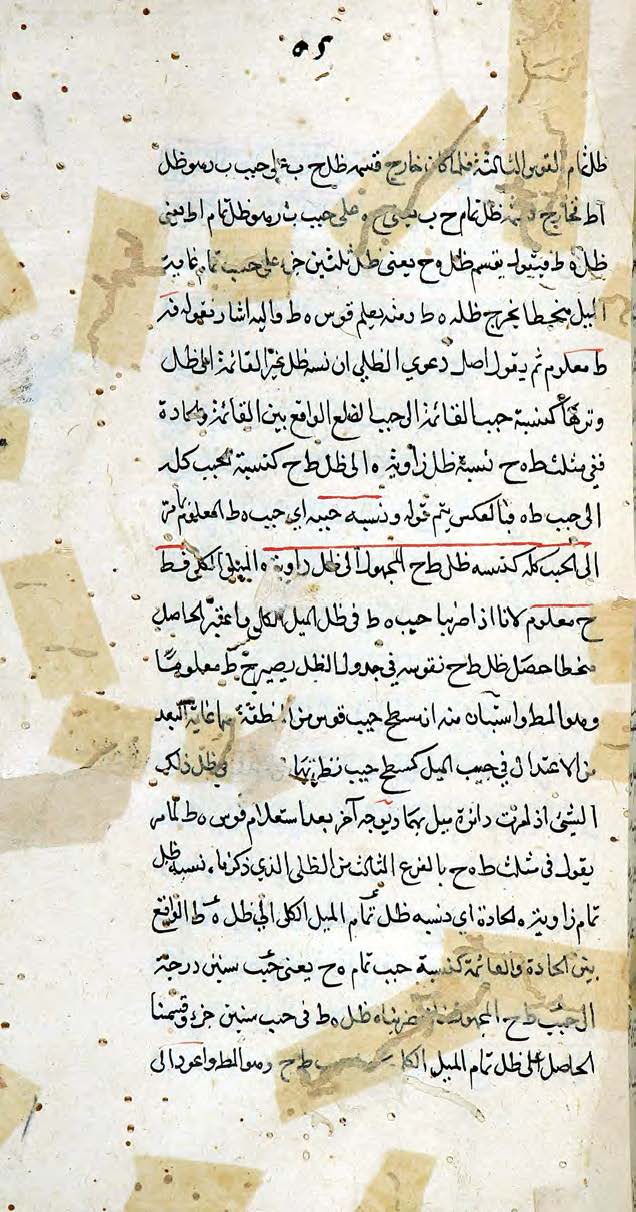 ٥٤
ظل تمام القوس الثالثة فلما كان خارج قسمة ظل ح ب على جيب ب ر هو ظل
اط فخارج ظل تمام ح ب يعني ه على جيب ب ر هو ظل تمام اط يعني
ظل ه ط فيقول يقسم ظل ه ح يعني ظل ثلثين جزء على جيب تمام غاية
الميل منحطا يخرج ظل ه ط ومنه يعلم قوس ه ط واليه اشار بقوله فه
ط معلوم ثم يقول اصل دعوى الظلي ان نسبة ظل القائمة الى ظل
وترها كنسبة جيب القائمة الى جيب الضلع الواقع بين القائمة والحادة
ففي مثلث ط ه ح نسبة ظل زاوية ه الى ظل ط ح كنسبة الجيب كله
الى جيب ط ه فبالعكس يتم قوله ونسبة جيبه اي جيب ه ط المعلوم
الى الجيب كله كنسبة ظل ط ح المجهول الى ظل زاوية ه الميل الكلي فط
ح معلوم لانا اذا ضربنا جيب ه ط في ظل الميل الكلي واعتبر الحاصل
منحطا حصل ظل ط ح نقوسه في جدول الظل يصير ح ط معلوما
وهو المط واستبان منه ان سطح جيب قوس من المنطقة غاية البعد
من الاعتدال في جيب الميل كسطح جيب نظيرتها في ظل ذلك
الشيء اذ لمرت دائرة ميل بهما وبوجه آخر بعد استعلام قوس ه ط لما مر
يقول في مثلث ط ه ح بالفرع الثالث من الظلي الذي ذكرنا نسبة ظل
تمام زاوية ه الحادة اي نسبة ظل تمام الميل الكلي الى ظل ه ط الواقع
بين الحادة والقائمة كنسبة جيب تمام ه ح يعني جيب ستين درجة
الى جيب ط ح المجهول ضربناه ظل ه ط في جيب ستين جزء وقسمنا
الحاصل على ظل تمام الميل الكلي ط ح وهو المط واعود الى